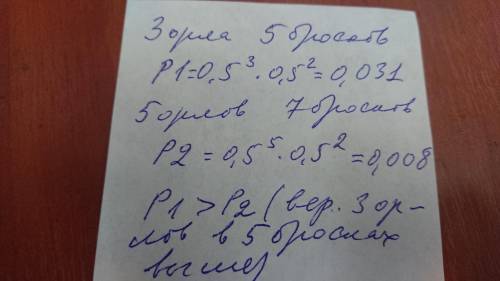 3 орла 5 бросков
P1=0,5³·0,5²=0,031
5 орлов 7 бросков
P2 = 0,5⁵·0,5² =0,008
P1>P2 (вер. 3 ор-
лов в 5 бросках
выше)